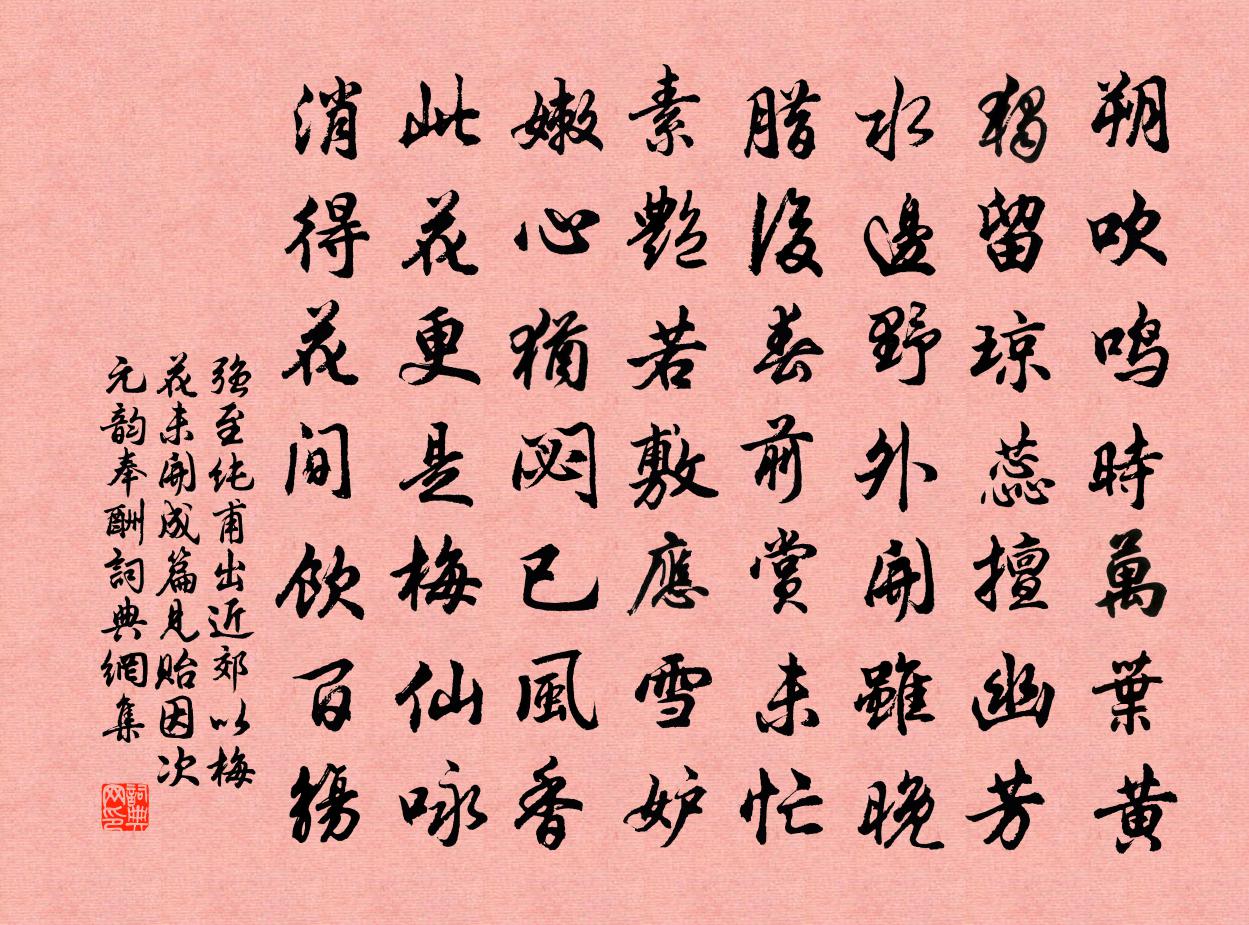 朔吹鳴時萬葉黄
獨留瓊蕊擅幽芳
水邊野外開雖晚
腊後春前賞未忙
素艷若敷應雪妒
嫩心猶閟已風香
此花更是梅仙咏
消得花間飲百觴
強至純甫出近郊以梅
花未開成篇見貽因次
元韵奉酬詞典網集
詞典
网印